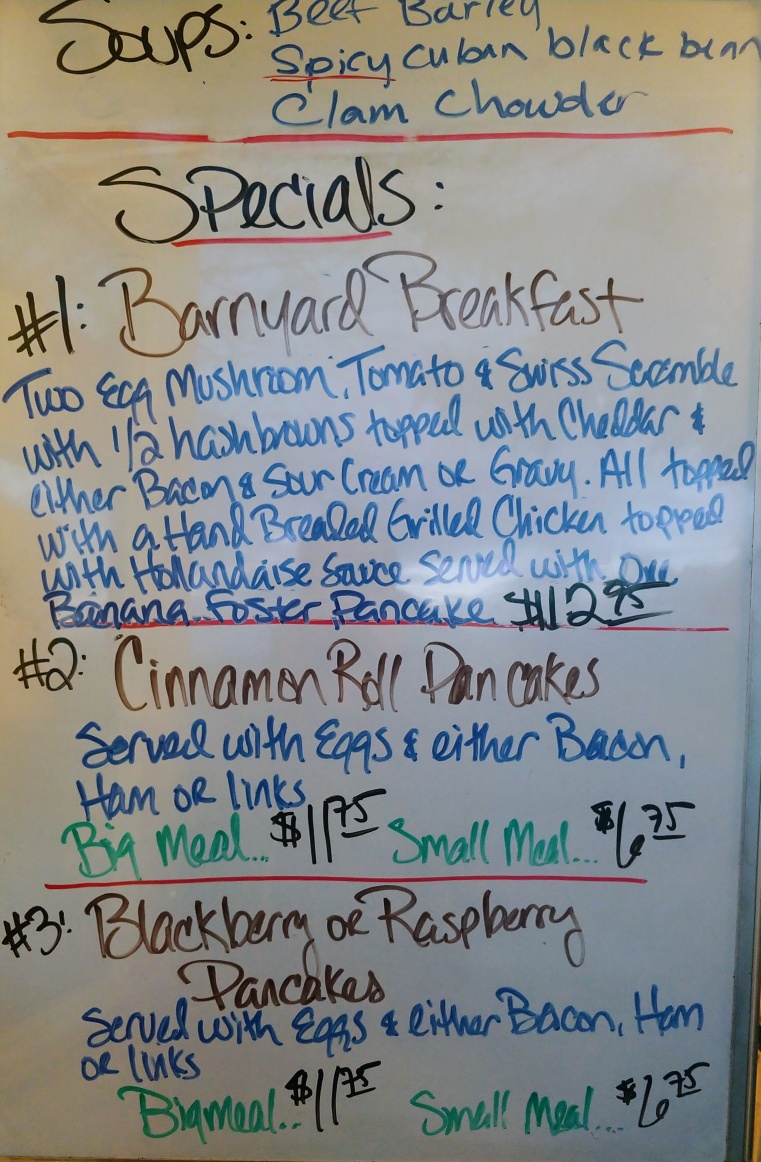 Soups: Beef Barley
Spicy Cuban black bean
Clam Chowder
Specials:
#1: Barnyard Breakfast
Two Egg Mushroom, Tomato & Swiss Scramble
with 1/2 hashbrowns topped with Cheddar &
either Bacon & Sour Cream or Gravy. All topped
with a Hand Breaded Grilled Chicken topped
with Hollandaise Sauce served with One
Banana Foster Pancake $12.95
#2: Cinnamon Roll Pancakes
Served with Eggs & either Bacon,
Ham or links
Big Meal... $11.75 Small Meal... $6.75
#3: Blackberry or Raspberry
Pancakes
Served with Eggs & either Bacon, Ham
or links
Big meal.. $11.75 Small Meal.... $6.75